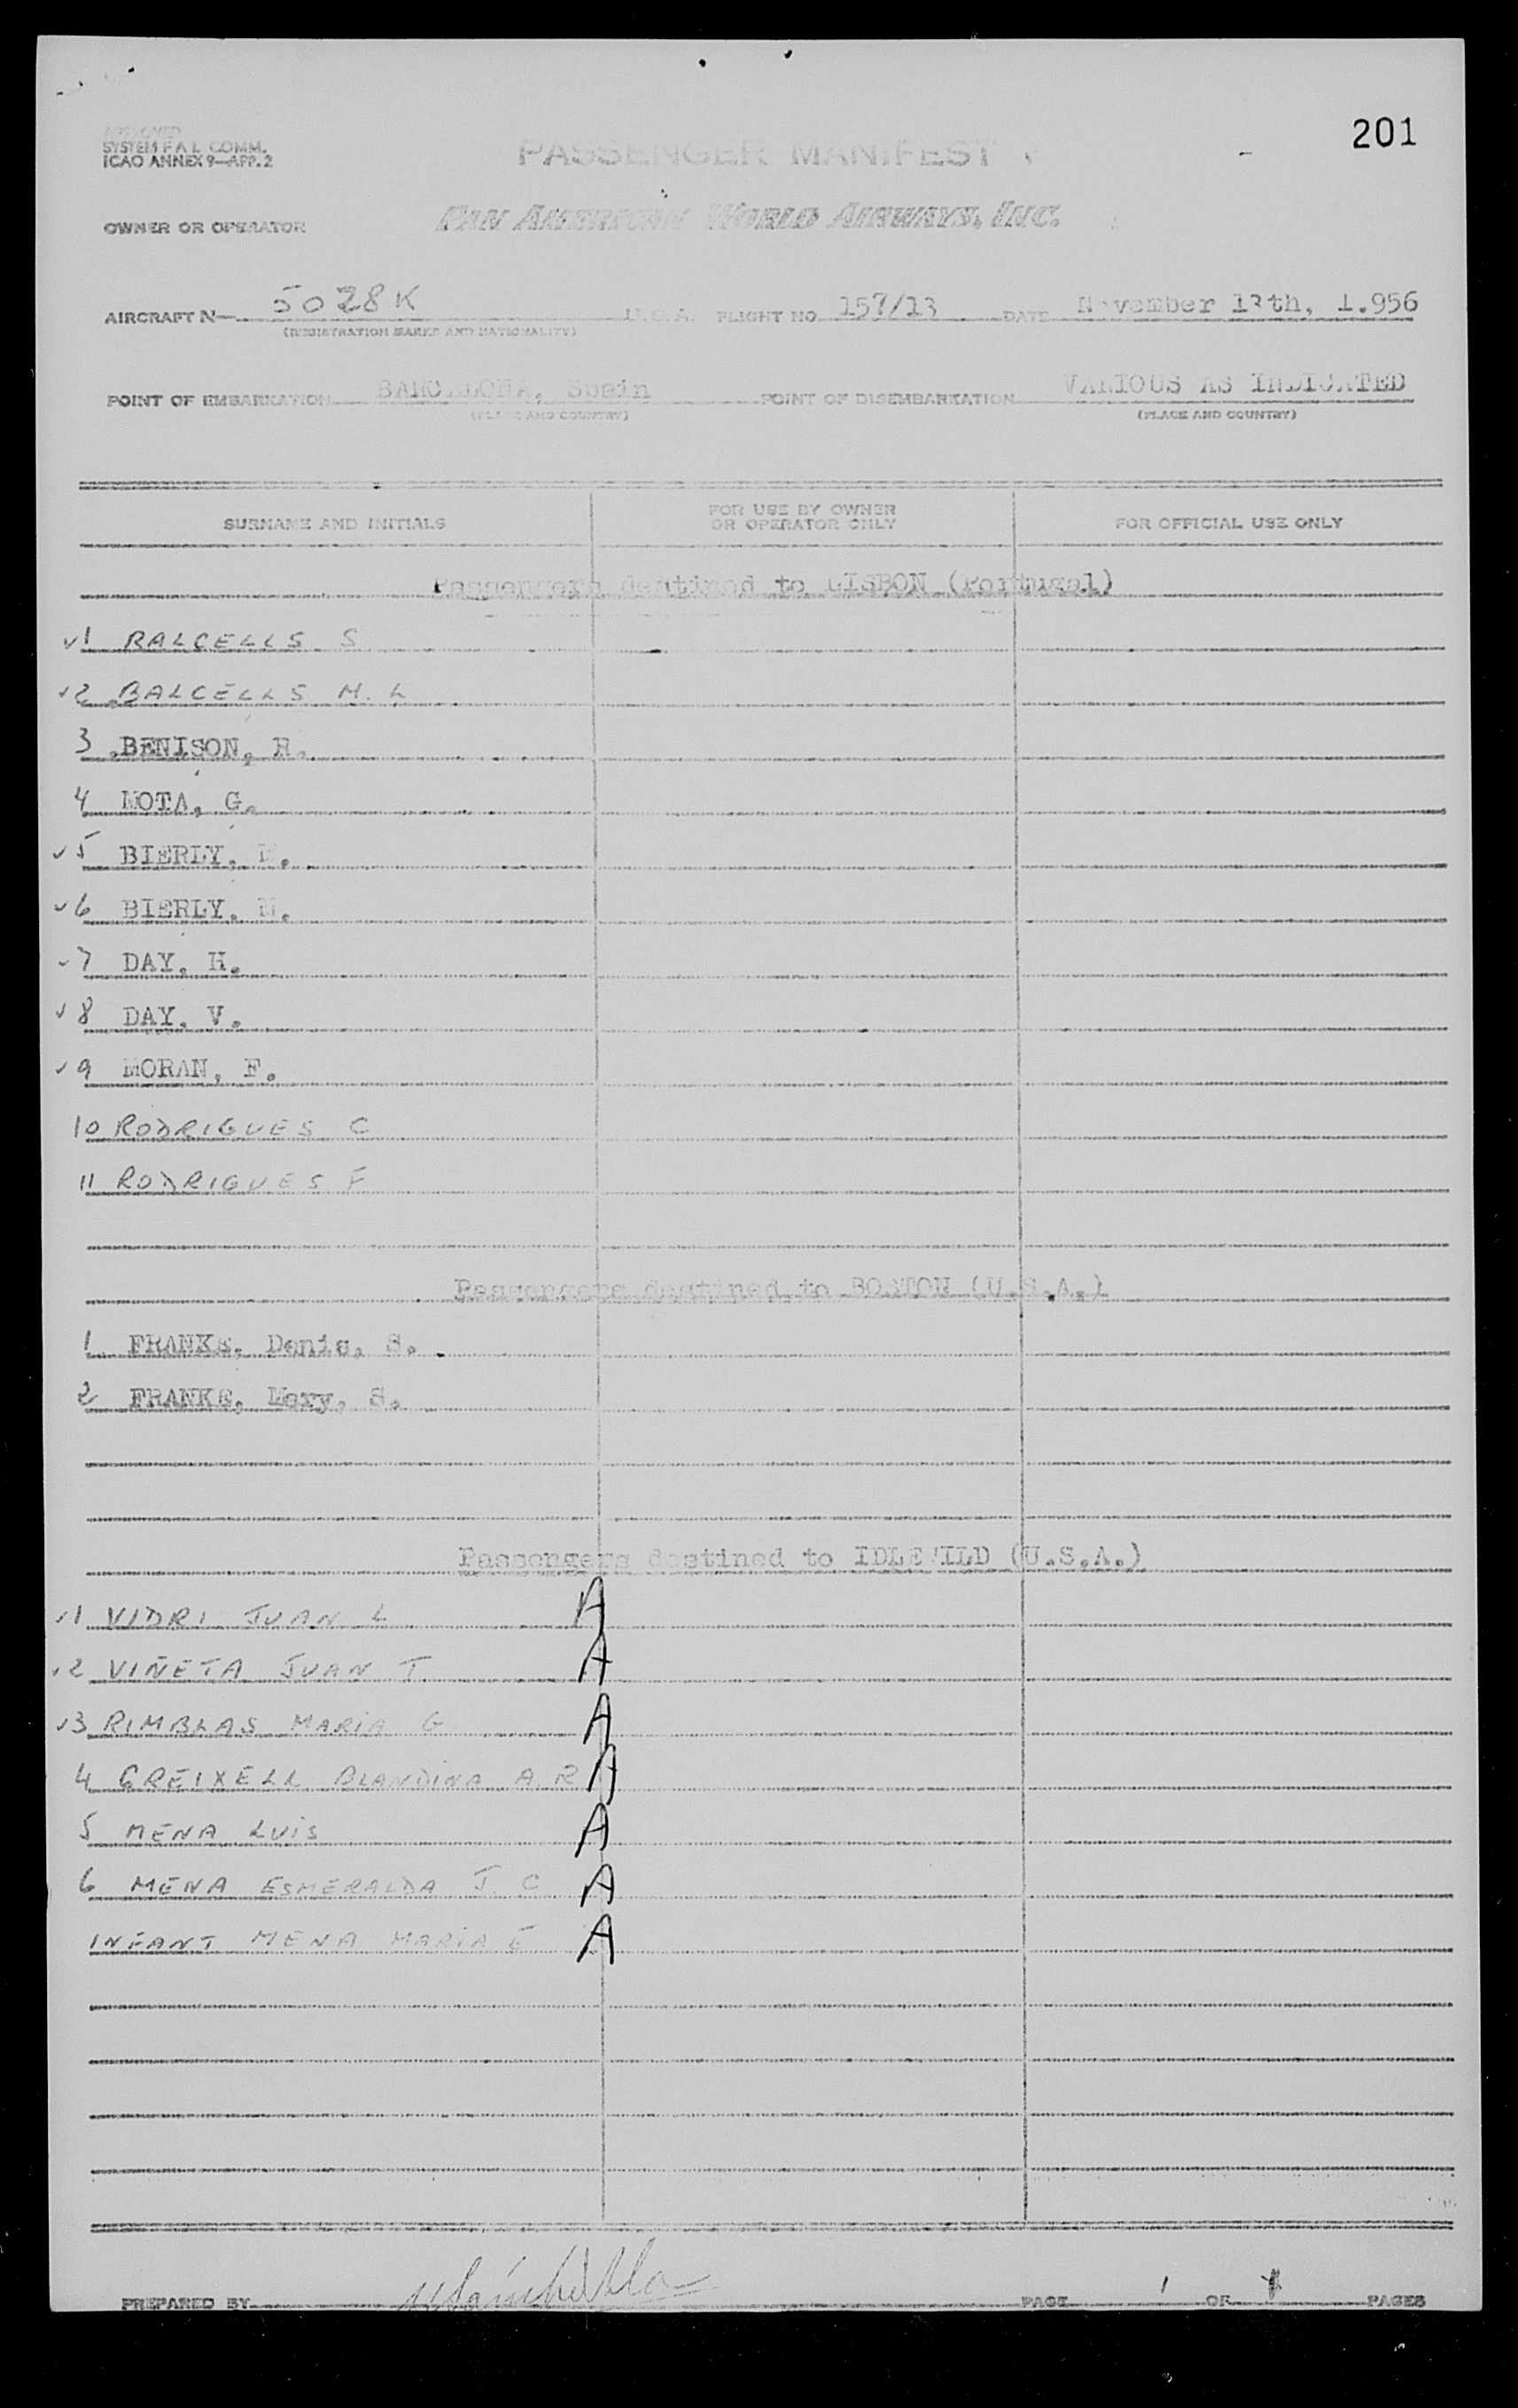 201
APPROVED
SYSTEM F A L COMM.
ICAO ANNEX 9—APP. 2
PASSENGER MANIFEST
OWNER OR OPERATOR PAN AMERICAN WORLD AIRWAYS, INC.
AIRCRAFT N— 5028K U.S.A. FLIGHT NO. 157/13 DATE November 13th, 1.956
(REGISTRATION MARKS AND NATIONALITY)
POINT OF EMBARKATION BARCELONA, Spain POINT OF DISEMBARKATION VARIOUS AS INDICATED
(PLACE AND COUNTRY) (PLACE AND COUNTRY)
SURNAME AND INITIALS FOR USE BY OWNER OR OPERATOR ONLY FOR OFFICIAL USE ONLY
Passengers destined to LISBON (Portugal)
✓1 BALCELLS S
✓2 BALCELLS M. L
3 BENISON,
4 MOTA, G.
✓5 BIERLY,
✓6 BIERLY, M.
✓7 DAY, H.
✓8 DAY, V.
✓9 MORAN, F.
10 RODRIGUES C
11 RODRIGUES F
Passengers destined to BOSTON (U.S.A.)
1 FRANKS, Denis, S.
2 FRANKS, Mary, S.
Passengers destined to IDLEWILD (U.S.A.)
✓1 VIDRI JUAN L A
✓2 VIÑETA JUAN T A
✓3 RIMBLAS MARIA G A
4 GREIXELL BLANDINA A. R A
5 MENA LUIS A
6 MENA ESMERALDA J. C A
INFANT MENA MARIA E A
PREPARED BY PAGE 1 OF 1 PAGES